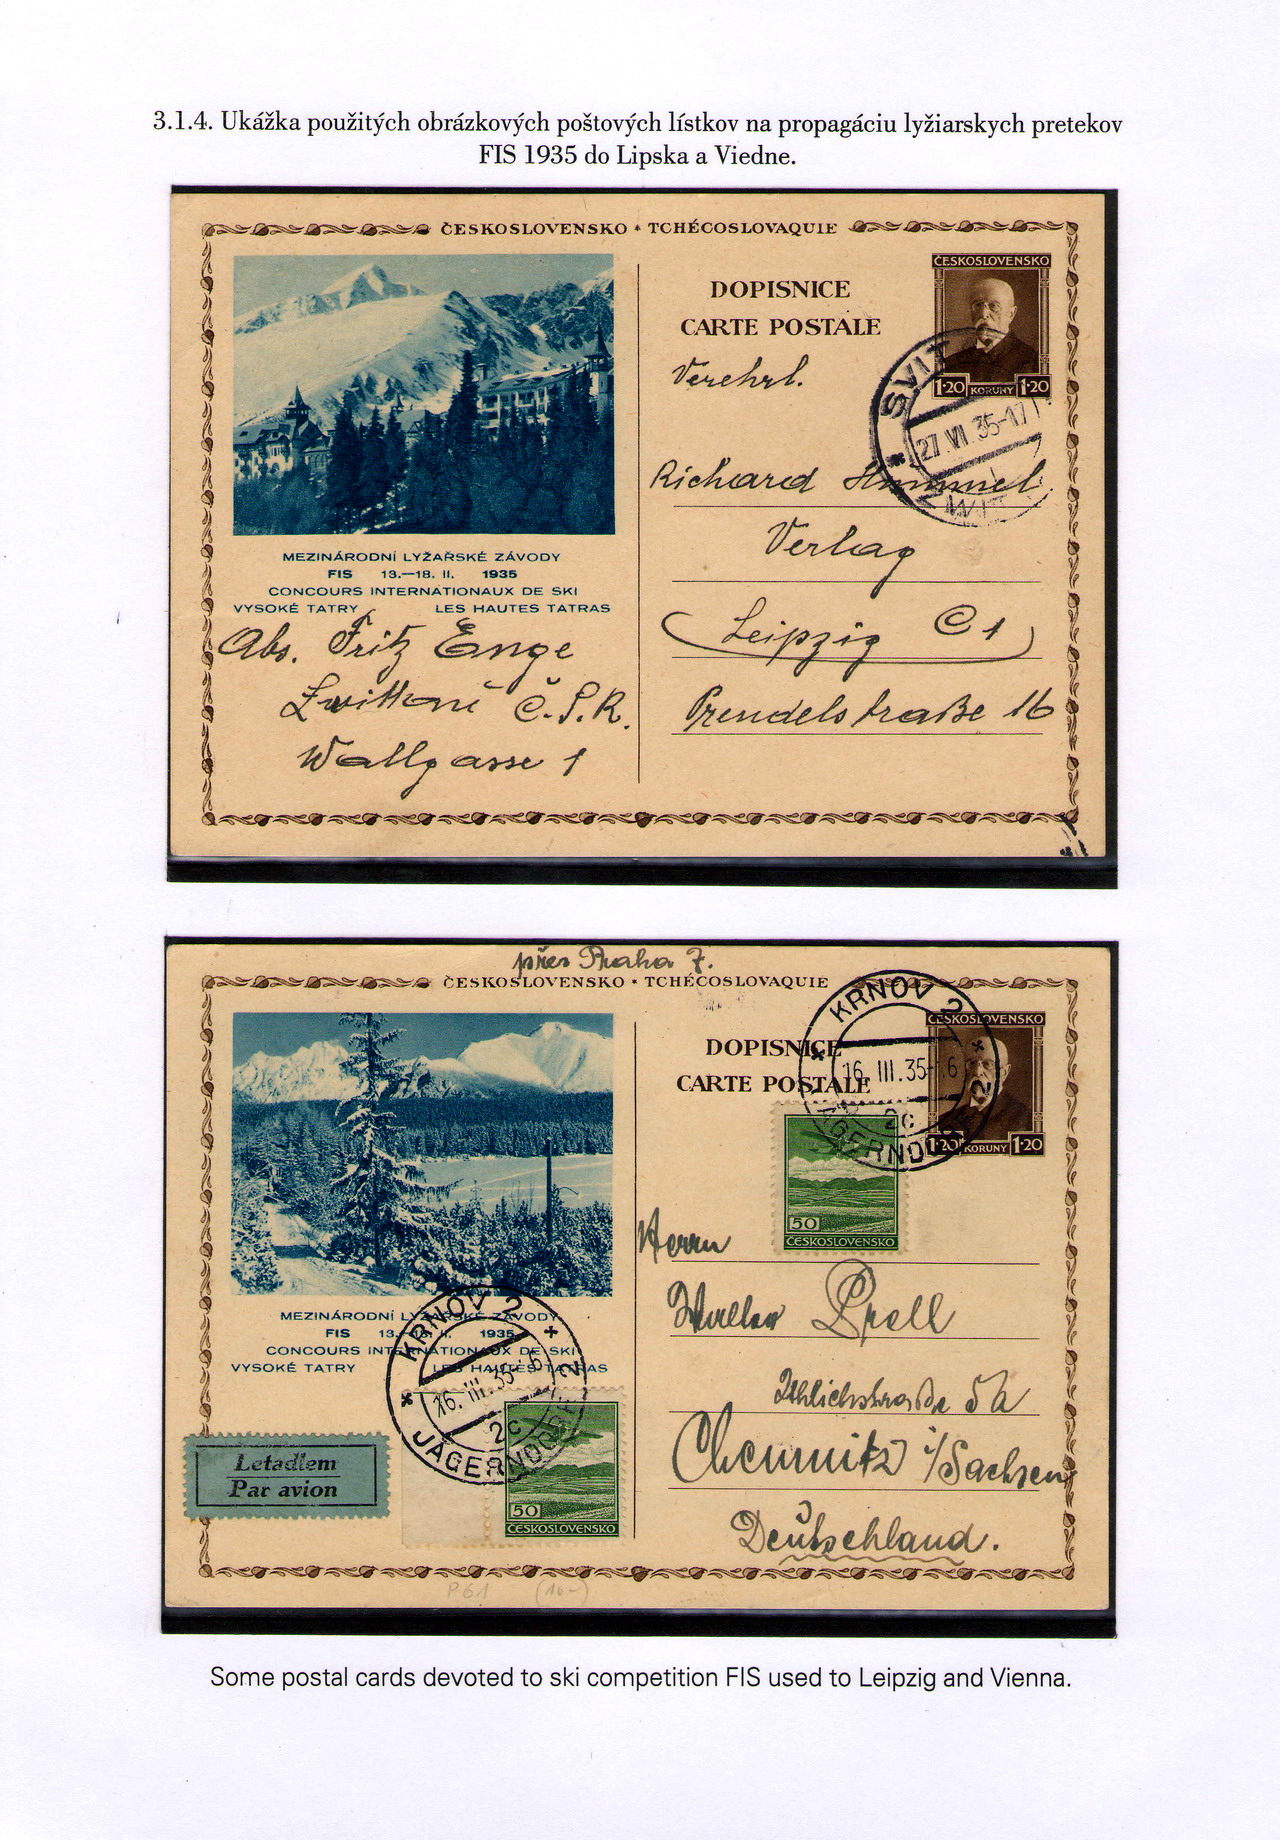 3.1.4. Ukážka použitých obrázkových poštových lístkov na propagáciu lyžiarskych pretekov
FIS 1935 do Lipska a Viedne.
ČESKOSLOVENSKO * TCHÉCOSLOVAQUIE
DOPISNICE
CARTE POSTALE
ČESKOSLOVENSKO
1·20 KORUNY 1·20
SVIT
27 VII 35-17
Verehrl.
Richard Hummel
Verlag
Leipzig C 1
Prendelstraße 16
MEZINÁRODNÍ LYŽAŘSKÉ ZÁVODY
FIS 13.—18. II. 1935
CONCOURS INTERNATIONAUX DE SKI
VYSOKÉ TATRY LES HAUTES TATRAS
Abs. Fritz Enge
Č.S.R.
Wallgasse 1
přes Praha 7.
ČESKOSLOVENSKO * TCHÉCOSLOVAQUIE
DOPISNICE
CARTE POSTALE
ČESKOSLOVENSKO
1·20 KORUNY 1·20
KRNOV 2
16. III. 35-
2c
JÄGERNDORF 2
50
ČESKOSLOVENSKO
Herrn
Prell
5a
Chemnitz i/Sachsen
Deutschland.
MEZINÁRODNÍ LYŽAŘSKÉ ZÁVODY
FIS 13.—18. II. 1935
CONCOURS INTERNATIONAUX DE SKI
VYSOKÉ TATRY LES HAUTES TATRAS
KRNOV 2
16. III. 35-
2c
JÄGERNDORF 2
Letadlem
Par avion
50
ČESKOSLOVENSKO
P61 (16-)
Some postal cards devoted to ski competition FIS used to Leipzig and Vienna.